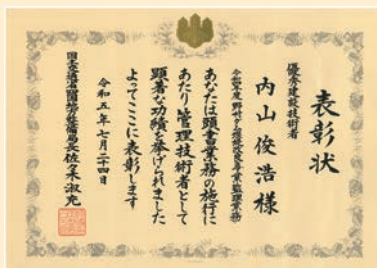 表彰状
優秀建設技術者
内山俊浩様
あなたは頭書業務の施行に
あたり管理技術者として
顕著な功績を挙げられました
よってここに表彰します
令和五年七月二十四日
国土交通省四国地方整備局長佐々木淑充